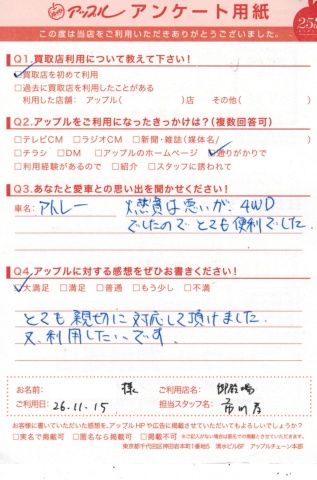 アップル アンケート用紙
この度は当店をご利用いただきありがとうございました。
Q1.買取店利用について教えて下さい!
□買取店を初めて利用
□過去に買取店を利用したことがある
利用した店舗: アップル( )店 その他( )
Q2.アップルをご利用になったきっかけは?(複数回答可)
□テレビCM □ラジオCM □新聞・雑誌(媒体名/ )
□チラシ □DM □アップルのホームページ □通りがかりで
□利用経験があるので □紹介 □スタッフに誘われて
Q3.あなたと愛車との思い出を聞かせください!
車名: アトレー 燃費は悪いが、4WD
でしたので とても便利でした.
Q4.アップルに対する感想をぜひお書きください!
□大満足 □満足 □普通 □もう少し □不満
とても親切に対応して頂けました.
又、利用したいです.
お名前: 様 ご利用店名:
ご利用日: 26.11.15 担当スタッフ名: 市川
お客様に書いていただいた感想を、アップルHPや広告に掲載させていただいてもよろしいでしょうか?
□実名で掲載可 □匿名なら掲載可 □掲載不可 ※ご記入がない場合は匿名での掲載とさせていただきます。
東京都千代田区神田岩本町1番地5 清水ビル6F アップルチェーン本部